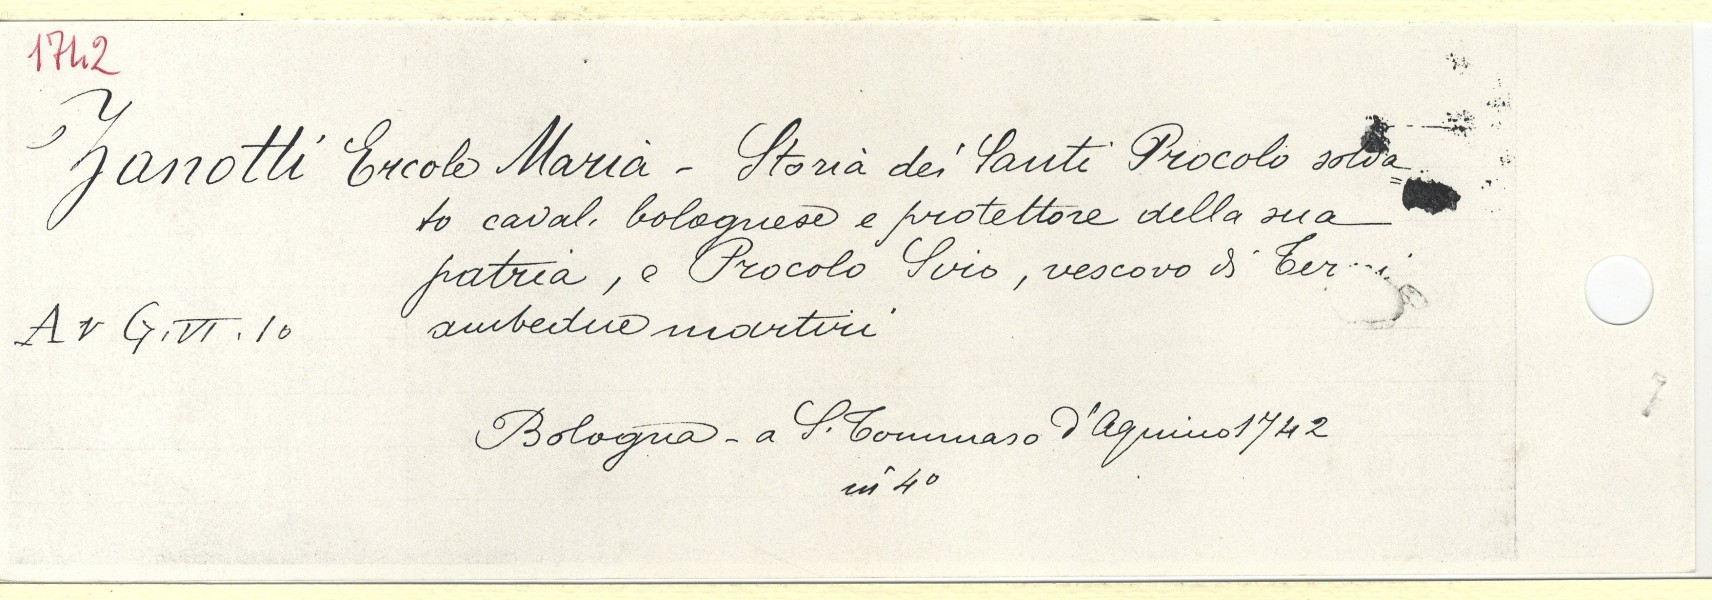 1742
Zanotti Ercole Maria - Storia dei Santi Procolo solda
to caval. bolognese e protettore della sua
patria, e Procolo Siro, vescovo di Terni
A V G. VI. 10 ambedue martiri
Bologna - a S. Tommaso d'Aquino 1742
in 4°